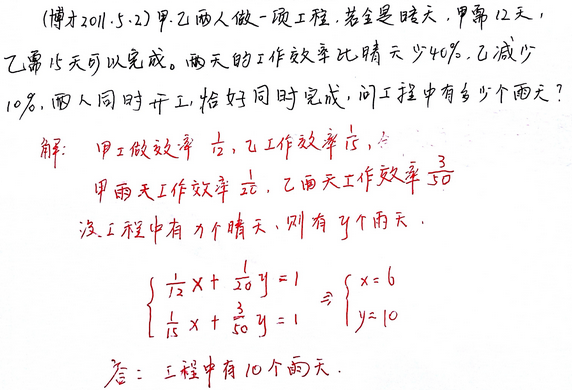 (博才2011.5.2)甲.乙两人做一项工程.若全是晴天,甲需12天,
乙需15天可以完成。雨天的工作效率比晴天少40%.乙减少
10%,两人同时开工,恰好同时完成,问工程中有多少个雨天?
解: 甲工做效率 1/12, 乙工作效率 1/15,
甲雨天工作效率 1/20, 乙雨天工作效率 3/50
设工程中有x个晴天,则有y个雨天.
{ 1/12 x + 1/20 y = 1 ⇒ { x=6
1/15 x + 3/50 y = 1 y=10
答: 工程中有10个雨天.